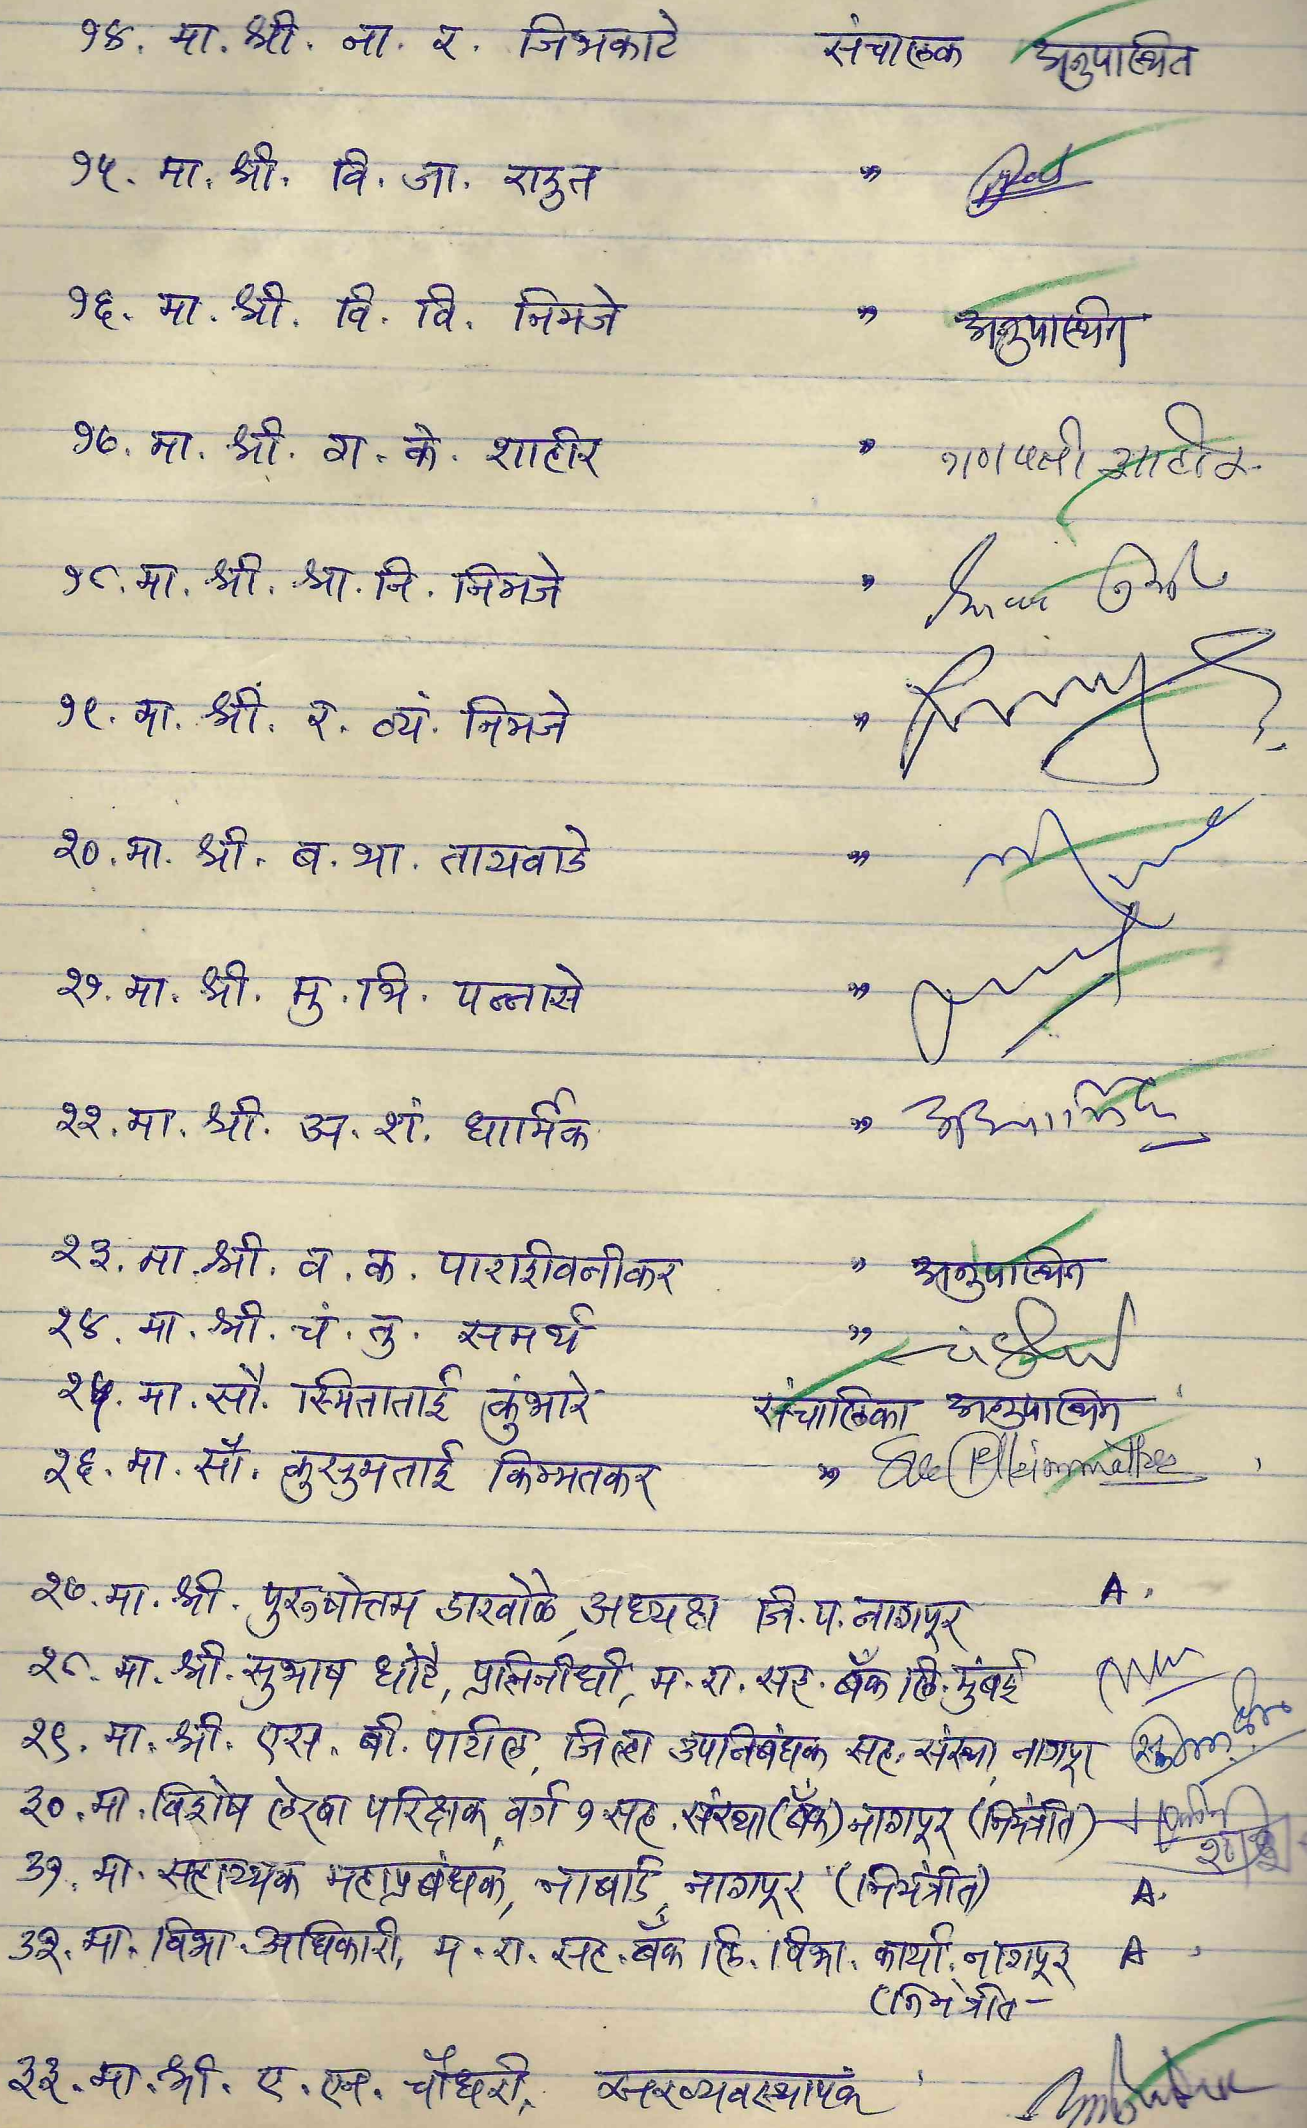 १४. मा. श्री. ना. र. जिभकाटे संचालक अनुपास्थित
१५. मा. श्री. वि. जा. राऊत "
१६. मा. श्री. वि. वि. निमजे " अनुपास्थित
१७. मा. श्री. ग. के. शाहीर " गणपती शाहीर
१८. मा. श्री. श्रा. नि. निमजे "
१९. मा. श्री. र. व्यं. निमजे "
२०. मा. श्री. ब. था. तायवाडे "
२१. मा. श्री. मु. भि. पन्नासे "
२२. मा. श्री. अ. शं. धार्मिक "
२३. मा. श्री. व. क. पाराशिवनीकर " अनुपास्थित
२४. मा. श्री. चं. तु. समर्थ "
२५. मा. सौ. स्मिताताई कुंभारे संचालिका अनुपास्थित
२६. मा. सौ. कुसुमताई किम्मतकर "
२७. मा. श्री. पुरूषोत्तम डाखोळे, अध्यक्ष जि. प. नागपूर A.
२८. मा. श्री. सुभाष धोटे, प्रतिनीधी, म. रा. सह. बँक लि. मुंबई
२९. मा. श्री. एस. बी. पाटील, जिल्हा उपनिबंधक सह. संस्था, नागपूर
३०. मा. विशेष लेखा परिक्षक, वर्ग १ सह. संस्था (बँक) नागपूर (निमंत्रीत)
३१. मा. सहाय्यक महाप्रबंधक, नाबार्ड, नागपूर (निमंत्रीत) A.
३२. मा. विभा. अधिकारी, म. रा. सह. बँक लि. विभा. कार्या. नागपूर A
(निमंत्रीत-
३३. मा. श्री. ए. एन. चौधरी, सरव्यवस्थापक